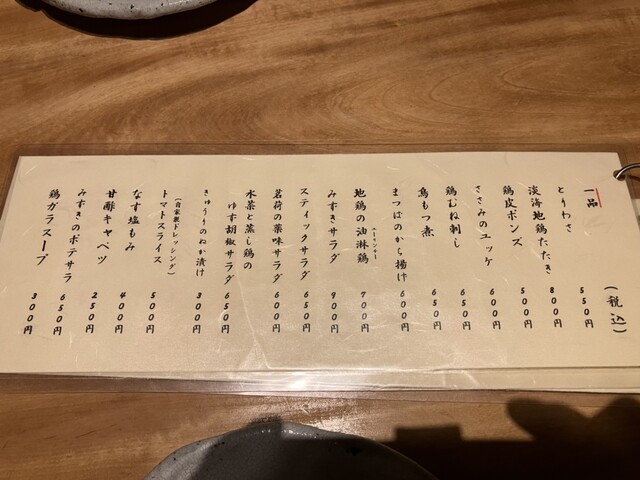 一品
(税込)
とりわさ 550円
淡海地鶏たたき 800円
鶏皮ポンズ 500円
ささみのユッケ 600円
鶏むね刺し 650円
鳥もつ煮 650円
まつばのから揚げ 600円
地鶏の油淋鶏 700円
みずきサラダ 900円
スティックサラダ 650円
茗荷の薬味サラダ 600円
水菜と蒸し鶏の
ゆず胡椒サラダ 650円
きゅうりのぬか漬け 300円
(自家製ドレッシング)
トマトスライス 500円
なす塩もみ 400円
甘酢キャベツ 250円
みずきのポテサラ 650円
鶏ガラスープ 300円